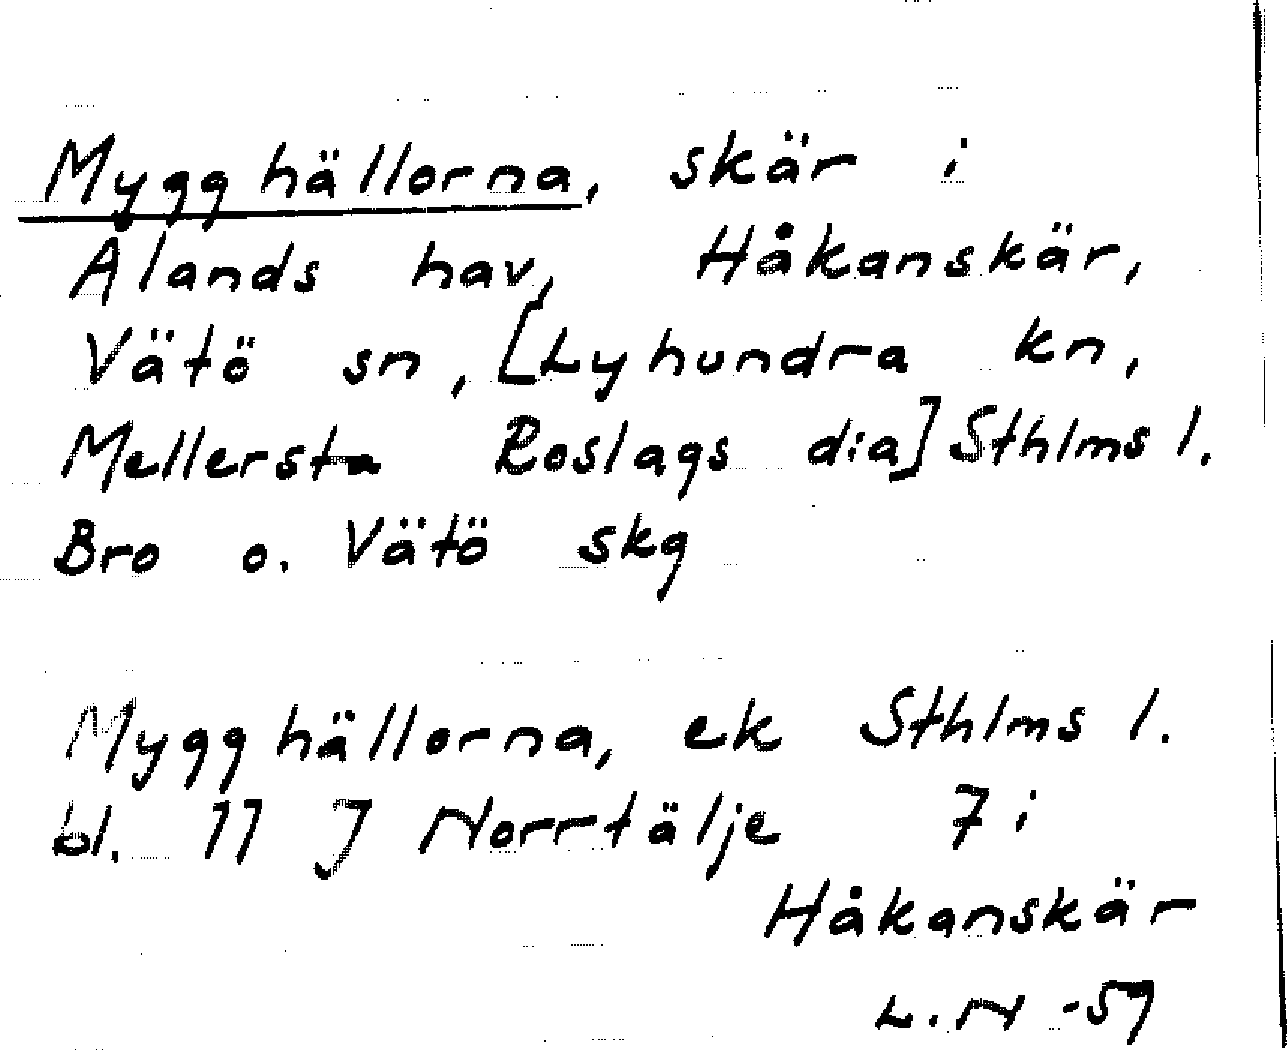 Mygghällorna, skär i
Ålands hav, Håkanskär,
Vätö sn, [Lyhundra kn,
Mellersta Roslags dia] Sthlms l.
Bro o. Vätö skg
Mygghällorna, ek Sthlms l.
bl. 11 J Norrtälje 7 i
Håkanskär
L. N -59